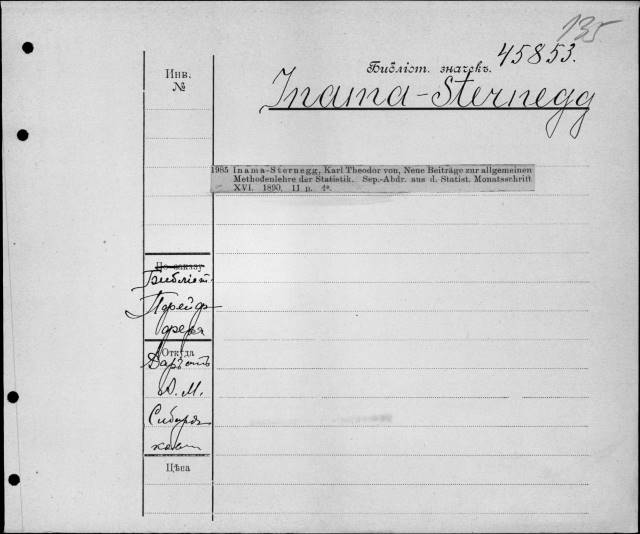 135
Библіот. значекъ. 45853.
Inama-Sternegg
Инв.
№
1985 Inama-Sternegg, Karl Theodor von, Neue Beiträge zur allgemeinen
Methodenlehre der Statistik. Sep.-Abdr. aus d. Statist. Monatsschrift
XVI. 1890. 11 p. 4º.
По заказу
Библіот.
Пфейф
фера
Откуда
Даръ отъ
А. М.
Сибиря
кова
Цѣна